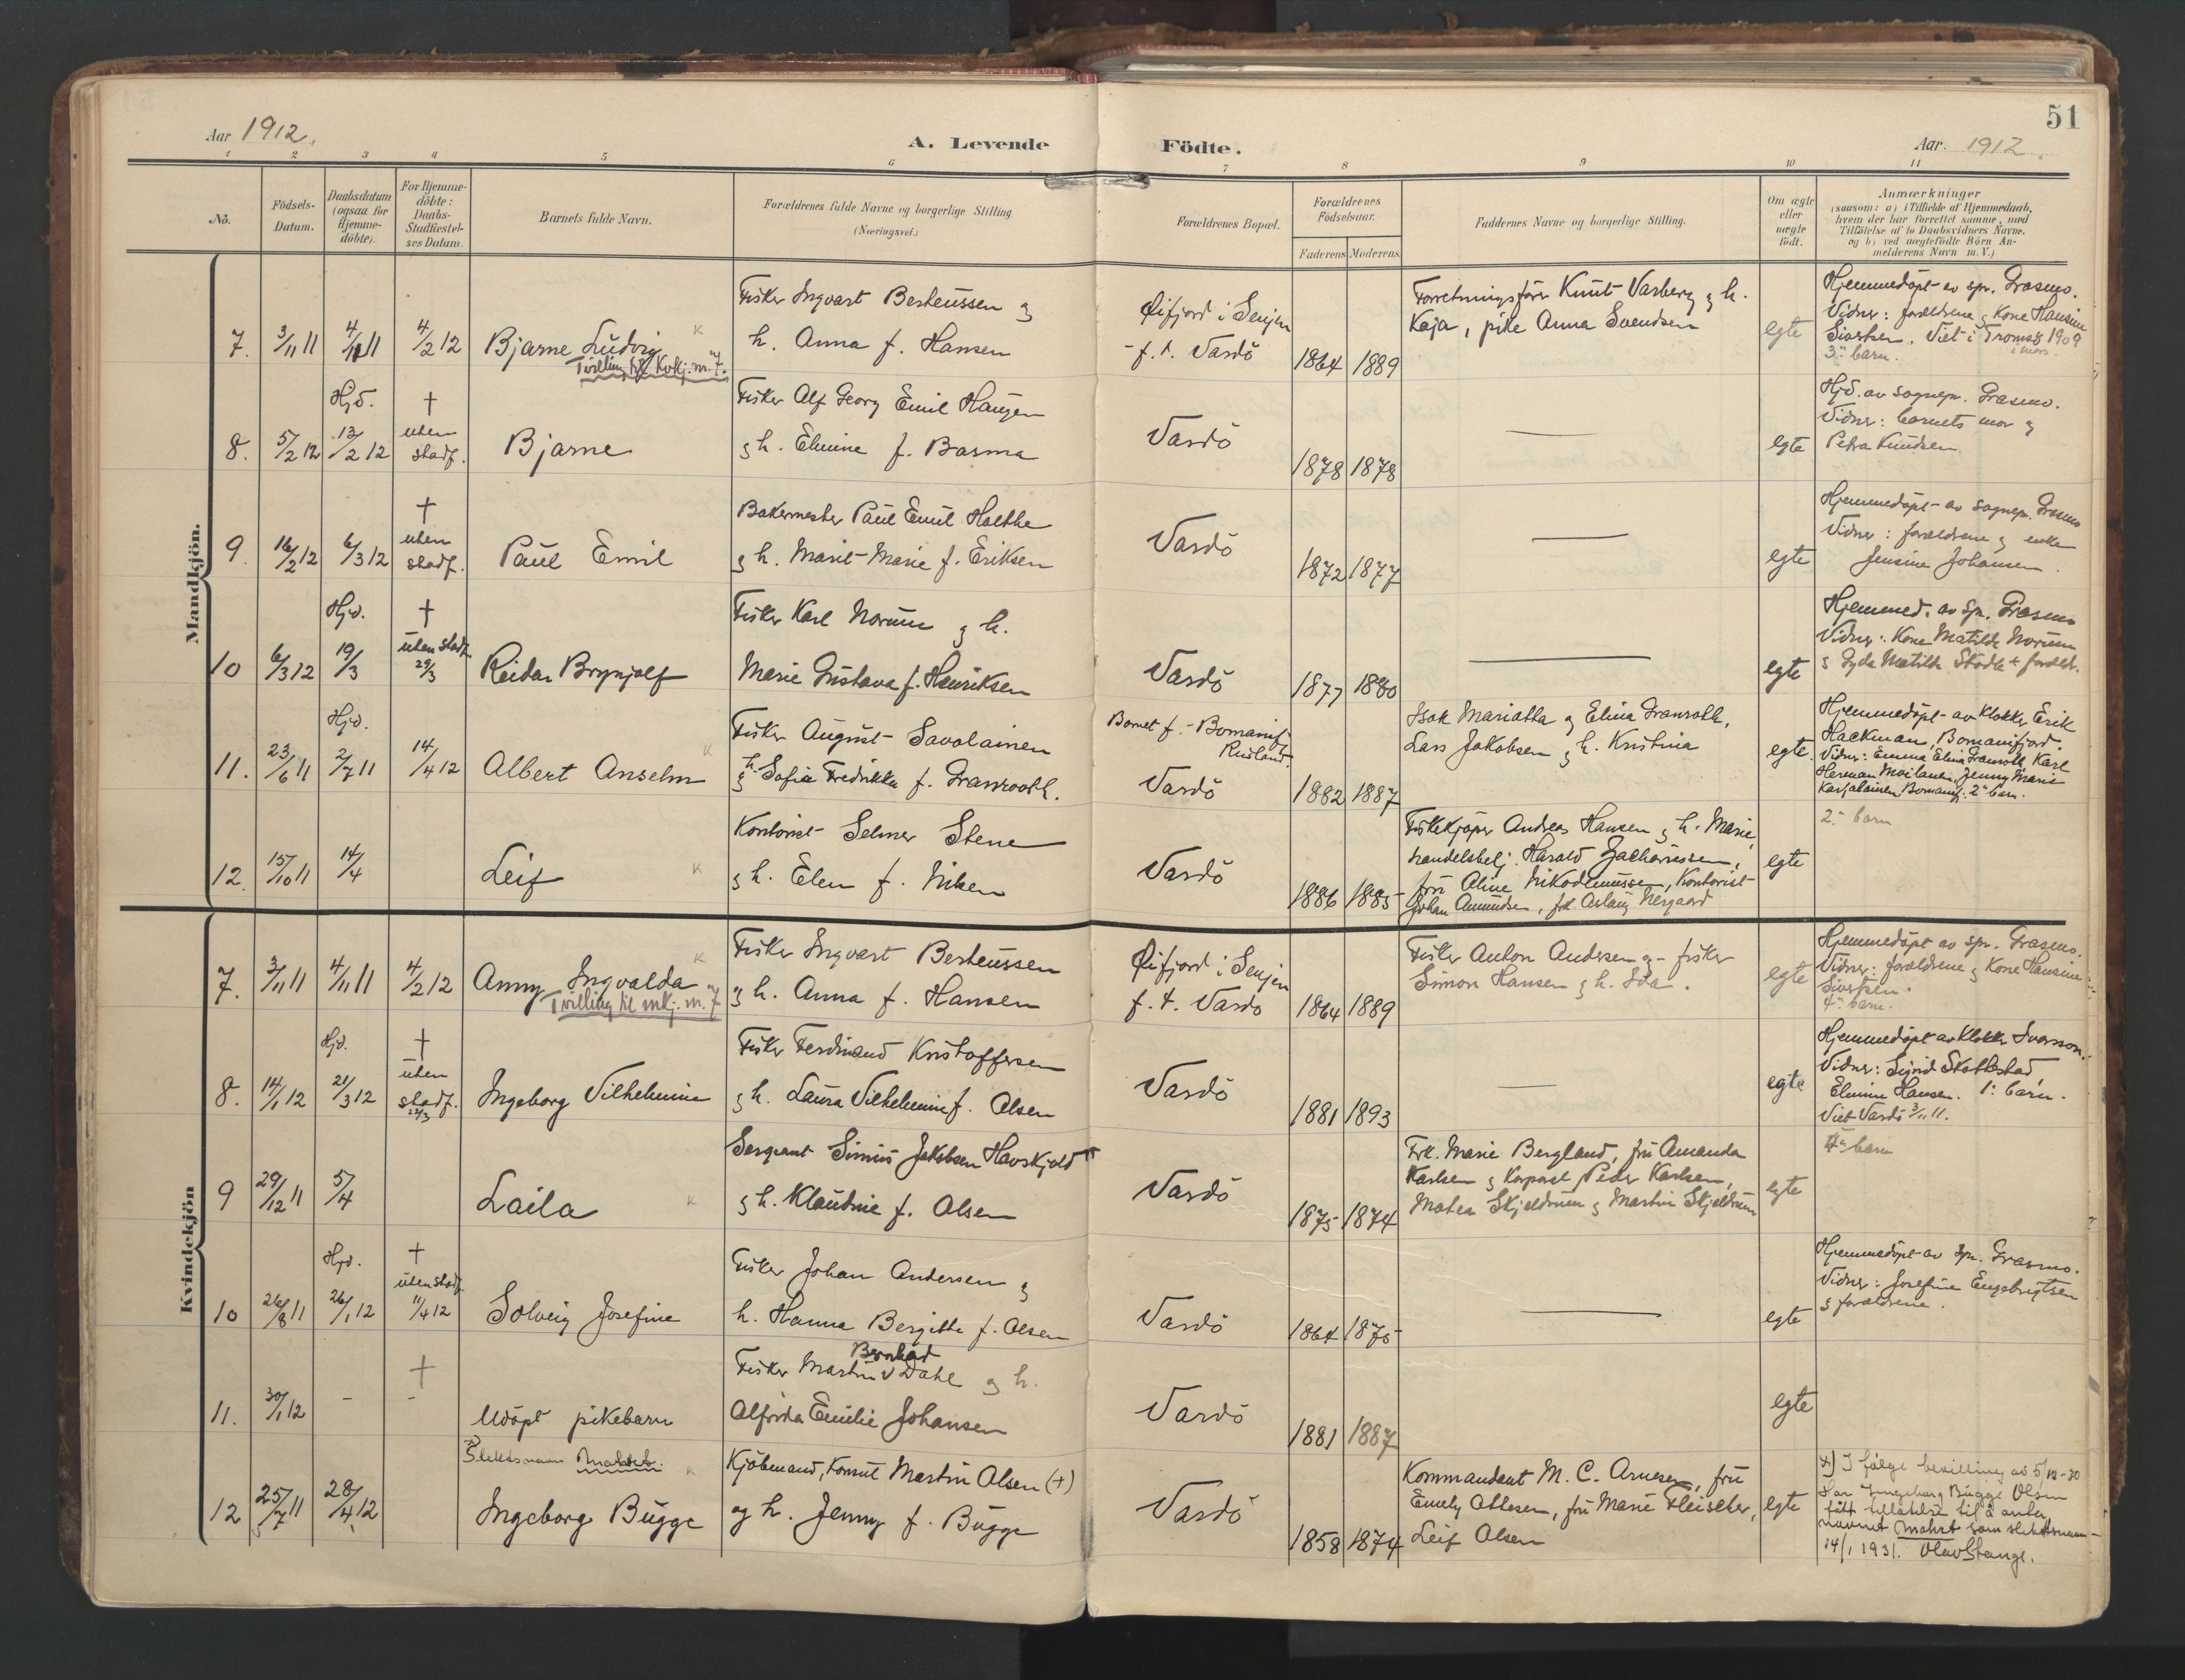 51
Aar 1912.
A. Levende Födte.
Aar. 1912.
1 2 3 4 5 6 7 8 9 10 11
No.
Födsels-
Datum.
Daabsdatum
(ogsaa for
Hjemme-
döbte).
For Hjemme-
döbte:
Daabs-
Stadfæstel-
ses Datum.
Barnets fulde Navn.
Forældrenes fulde Navne og borgerlige Stilling
(Næringsvei.)
Forældrenes Bopæl.
Forældrenes
Födselsaar.
Faderens Moderens.
Faddernes Navne og borgerlige Stilling.
Om ægte
eller
uægte
födt.
Anmærkninger
(saasom: a) i Tilfælde af Hjemmedaab,
hvem der har forrettet samme, med
Tilföielse af to Daabsvidners Navne.
og b) ved uægtefödte Börn An-
melderens Navn m. V.)
Mandkjön.
7. 3/11 11 4/11 11 4/2 12
Bjarne Ludvig
Tvilling til Kvkj. nr. 7.
Fisker Ingvart Bertheussen og
h. Anna f. Hansen
Øifjord i Senjen
- f. t. Vardö
1864 1889
Forretningsfører Knut Varberg og h.
Kaja, pike Anna Svendsen
egte
Hjemmedöpt av spr. Græsmo.
Vidner: forældrene og Kone Hansine
Sivertsen. Viet i Tromsø 1909
3. barn.
8. 5/2 12 Hjd. 13/2 12 † uten
stadf.
Bjarne
Fisker Alf Georg Emil Haugen
og h. Elmine f. Basma
Vardö
1878 1878
egte
Hjd. av sognepr. Græsmo.
Vidner: barnets mor og
Petra Knudsen
9. 16/2 12 6/3 12 † uten
stadf.
Paul Emil
Bakermester Paul Emil Holthe
og h. Marit-Marie f. Eriksen
Vardö
1872 1877
egte
Hjemmedöpt av sognepr. Græsmo
Vidner: forældrene og enke
Jensine Johansen.
10 6/3 12 Hjd. 19/3 † uten stadf.
29/3
Reidar Brynjolf
Fisker Karl Norum og h.
Marie Gustava f. Henriksen
Vardö
1877 1880
egte
Hjemmed. av spr. Græsmo
Vidner: Kone Matilde Norum
og Gyda Matilde
11. 23/6 11 Hjd. 2/7 11 14/4 12
Albert Anselm
Fisker August Savolainen
og h. Sofia Fredrikka f. Granrooth.
Barnet f. - Bomanifj.
Rusland.
Vardö
1882 1887
Isak Mariatta og Elina Granroth,
Lars Jakobsen og h. Kristina
egte.
Hjemmedöpt av Klokker Erik
Hackman, Bomanifjord.
Vidner: Emma Elina Granroth, Karl
Herman Moilanen, Jenny Marie
Karjalainen, Bomanifj. 2. barn.
12. 15/10 11 14/4
Leif
Kontorist Selmer Stene
og h. Elen f. Niken
Vardö
1886 1885
Fiskekjøper Andreas Hansen og h. Marie,
handelsbetj. Harald Zachariassen,
fru Aline Nikodemussen, Kontorist
Johan Amundsen, frk. Aslaug Nergaard
egte
2. barn
Kvindekjön
7. 3/11 11 4/11 11 4/2 12
Anny Ingvalda
Tvilling til mkj. nr. 7
Fisker Ingvart Bertheussen
og h. Anna f. Hansen
Øifjord i Senjen
f. t. Vardö
1864 1889
Fisker Anton Andersen og fisker
Simon Hansen og h. Ida.
egte
Hjemmedöpt av spr. Græsmo.
Vidner: forældrene og Kone Hansine
Sivertsen.
4. barn.
8. 14/1 12 Hjd. 21/3 12 † uten
stadf.
22/3
Ingeborg Vilhelmine
Fisker Ferdinand Kristoffersen
og h. Laura Vilhelmine f. Olsen
Vardö
1881 1893
egte
Hjemmedöpt av Klokker Ivarsson.
Vidner: Sigrid Skottestad
Elmine Hansen. 1. barn.
Viet Vardö 3/11 11.
9 29/12 11 5/4
Laila
Sergeant Simius Jakobsen Havskjold
og h. Klaudine f. Olsen
Vardö
1875 1874
Frk. Marie Bergland, fru Amanda
Karlsen og Korporal Peder Karlsen,
Matea Skjeldrum og Martin Skjeldrum
egte
4. barn
10 26/8 11 Hjd. 26/1 12 † uten stadf.
11/4 12
Solveig Josefine
Fisker Johan Andersen og
h. Hanna Bergitte f. Olsen
Vardö
1864 1875
egte
Hjemmedöpt av spr. Græsmo.
Vidner: Josefine Engebrigtsen
og forældrene.
11. 30/1 12 - - †
Udöpt pikebarn
Fisker Martin Bernhard Dahl og h.
Alfrida Emilie Johansen
Vardö
1881 1887
egte
12 25/7 11 28/4 12
Slektsnavn Mohrt.
Ingeborg Bugge
Kjöbmand, Konsul Martin Olsen (+)
og h. Jenny f. Bugge
Vardö
1858 1874
Kommandant M. C. Arnesen, fru
Emely Ottesen, fru Marie Fleischer,
Leif Olsen
egte
+) I følge bevilling av 5/12-30
har Ingeborg Bugge Olsen
fått tillatelse til å anta
navnet Mohrt som slektsnavn -
14/1 1931. Olav Stange.